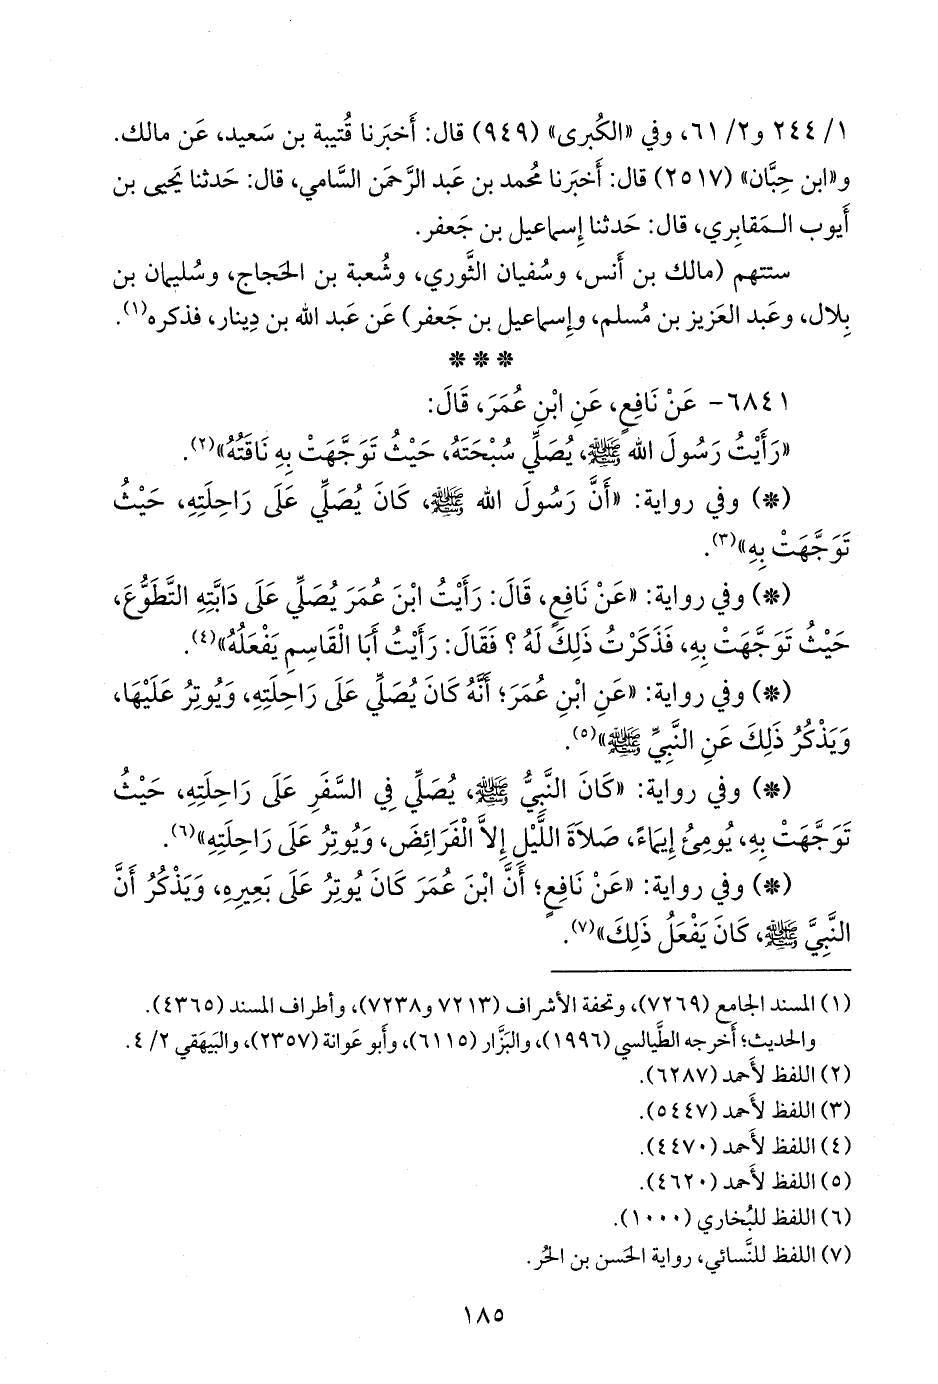 ١/ ٢٤٤ و٢/ ٦١، وفي «الكُبرى» (٩٤٩) قال: أَخبَرنا قُتيبة بن سَعيد، عَن مالك.
و«ابن حِبَّان» (٢٥١٧) قال: أَخبَرنا مُحمد بن عَبد الرَّحمَن السَّامي، قال: حَدثنا يَحيى بن
أَيوب الـمَقابِري، قال: حَدثنا إِسماعيل بن جَعفر.
ستتهم (مالك بن أَنس، وسُفيان الثَّوري، وشُعبة بن الحَجاج، وسُليمان بن
بِلال، وعَبد العَزيز بن مُسلم، وإِسماعيل بن جَعفر) عَن عَبد الله بن دِينار، فذكره(١).
* * *
٦٨٤١- عَنْ نَافِعٍ، عَنِ ابْنِ عُمَرَ، قَالَ:
«رَأَيْتُ رَسُولَ الله ﷺ، يُصَلِّي سُبْحَتَهُ، حَيْثُ تَوَجَّهَتْ بِهِ نَاقَتُهُ»(٢).
(*) وفي رواية: «أَنَّ رَسُولَ الله ﷺ، كَانَ يُصَلِّي عَلَى رَاحِلَتِهِ، حَيْثُ
تَوَجَّهَتْ بِهِ»(٣).
(*) وفي رواية: «عَنْ نَافِعٍ، قَالَ: رَأَيْتُ ابْنَ عُمَرَ يُصَلِّي عَلَى دَابَّتِهِ التَّطَوُّعَ،
حَيْثُ تَوَجَّهَتْ بِهِ، فَذَكَرْتُ ذَلِكَ لَهُ؟ فَقَالَ: رَأَيْتُ أَبَا الْقَاسِمِ يَفْعَلُهُ»(٤).
(*) وفي رواية: «عَنِ ابْنِ عُمَرَ؛ أَنَّهُ كَانَ يُصَلِّي عَلَى رَاحِلَتِهِ، وَيُوتِرُ عَلَيْهَا،
وَيَذْكُرُ ذَلِكَ عَنِ النَّبِيِّ ﷺ»(٥).
(*) وفي رواية: «كَانَ النَّبِيُّ ﷺ، يُصَلِّي فِي السَّفَرِ عَلَى رَاحِلَتِهِ، حَيْثُ
تَوَجَّهَتْ بِهِ، يُومِئُ إِيمَاءً، صَلاَةَ اللَّيْلِ إِلاَّ الْفَرَائِضَ، وَيُوتِرُ عَلَى رَاحِلَتِهِ»(٦).
(*) وفي رواية: «عَنْ نَافِعٍ؛ أَنَّ ابْنَ عُمَرَ كَانَ يُوتِرُ عَلَى بَعِيرِهِ، وَيَذْكُرُ أَنَّ
النَّبِيَّ ﷺ، كَانَ يَفْعَلُ ذَلِكَ»(٧).
(١) المسند الجامع (٧٢٦٩)، وتحفة الأشراف (٧٢١٣ و٧٢٣٨)، وأطراف المسند (٤٣٦٥).
والحديث؛ أخرجه الطَّيالسي (١٩٩٦)، والبَزَّار (٦١١٥)، وأبو عَوانة (٢٣٥٧)، والبَيهَقي ٢/ ٤.
(٢) اللفظ لأَحمد (٦٢٨٧).
(٣) اللفظ لأَحمد (٥٤٤٧).
(٤) اللفظ لأَحمد (٤٤٧٠).
(٥) اللفظ لأَحمد (٤٦٢٠).
(٦) اللفظ للبُخاري (١٠٠٠).
(٧) اللفظ للنَّسائي، رواية الحَسن بن الحُر.
١٨٥